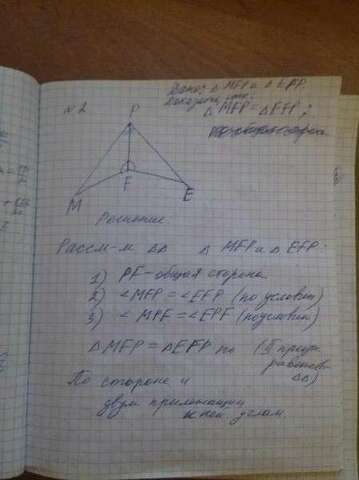 Дано: △ MFP и △ EFP.
Доказать, что
№2 △ MFP = △ EFP;
P
F
M
E
Решение
Рассм-м △△ △ MFP и △ EFP.
1) PF - общая сторона
2) ∠MFP = ∠EFP (по условию)
3) ∠ MPF = ∠EPF (по условию)
△MFP = △EFP по (II приз.
равенства
△△)
По стороне и
двум прилежащим
к ней углам.